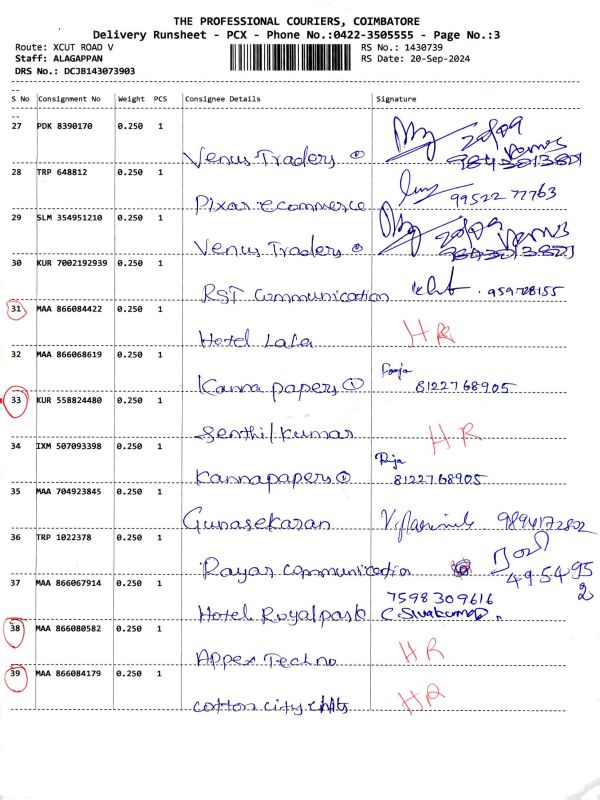 THE PROFESSIONAL COURIERS, COIMBATORE
Delivery Runsheet - PCX - Phone No.:0422-3505555 - Page No.:3
Route: XCUT ROAD V RS No.: 1430739
Staff: ALAGAPPAN RS Date: 20-Sep-2024
DRS No.: DCJB143073903
S No Consignment No Weight PCS Consignee Details Signature
27 PDK 8390170 0.250 1
Venus Traders ① 20/09 Venus
28 TRP 648812 0.250 1
Pixar ecommerce 99522 77763
29 SLM 354951210 0.250 1
Venus Traders 20/09 Venus
30 KUR 7002192939 0.250 1
RST Communication 959708155
31 MAA 866084422 0.250 1
Hotel Lala HR
32 MAA 866068619 0.250 1
Pooja
Kanna papers ① 8122768905
33 KUR 558824480 0.250 1
Senthil kumar HR
34 IXM 507093398 0.250 1
Kanna papers ① 8122768905
35 MAA 704923845 0.250 1
Gunasekaran
36 TRP 1022378 0.250 1
Rayar communication 49 54 95
2
37 MAA 866067914 0.250 1
7598309616
Hotel Royal park C. Sivakumar
38 MAA 866080582 0.250 1
Appex Techno HR
39 MAA 866084179 0.250 1
cotton city chits HR